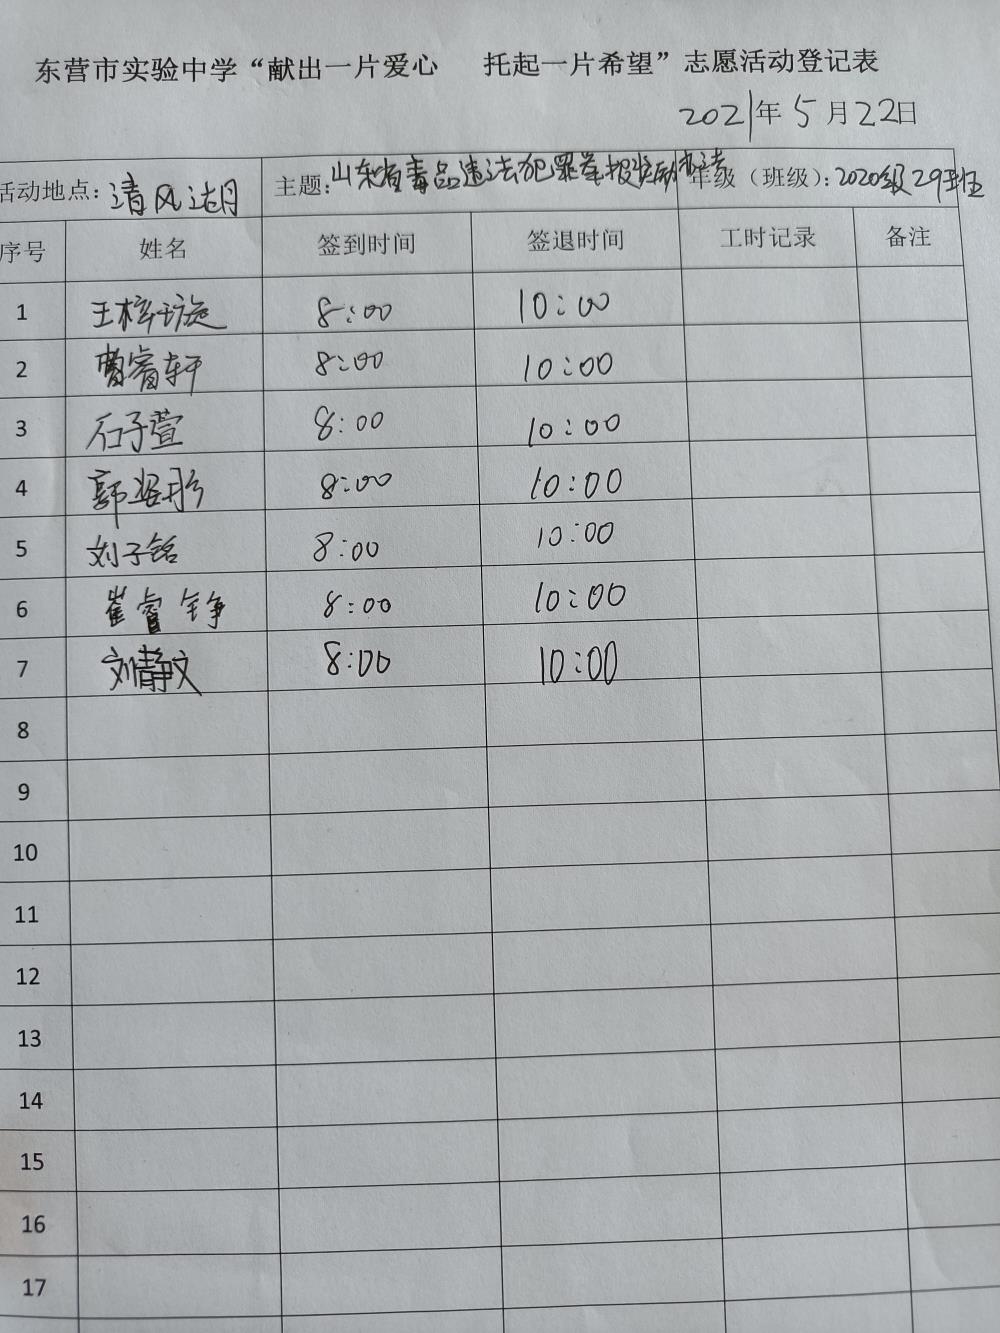 东营市实验中学“献出一片爱心 托起一片希望”志愿活动登记表
2021年5月22日
活动地点：清风湖 主题：山东省毒品违法犯罪举报奖励办法 年级（班级）：2020级29班
序号 姓名 签到时间 签退时间 工时记录 备注
1 王梓璇 8:00 10:00
2 曹睿轩 8:00 10:00
3 石子萱 8:00 10:00
4 郭姿彤 8:00 10:00
5 刘子铭 8:00 10:00
6 崔睿铮 8:00 10:00
7 刘静文 8:00 10:00
8
9
10
11
12
13
14
15
16
17